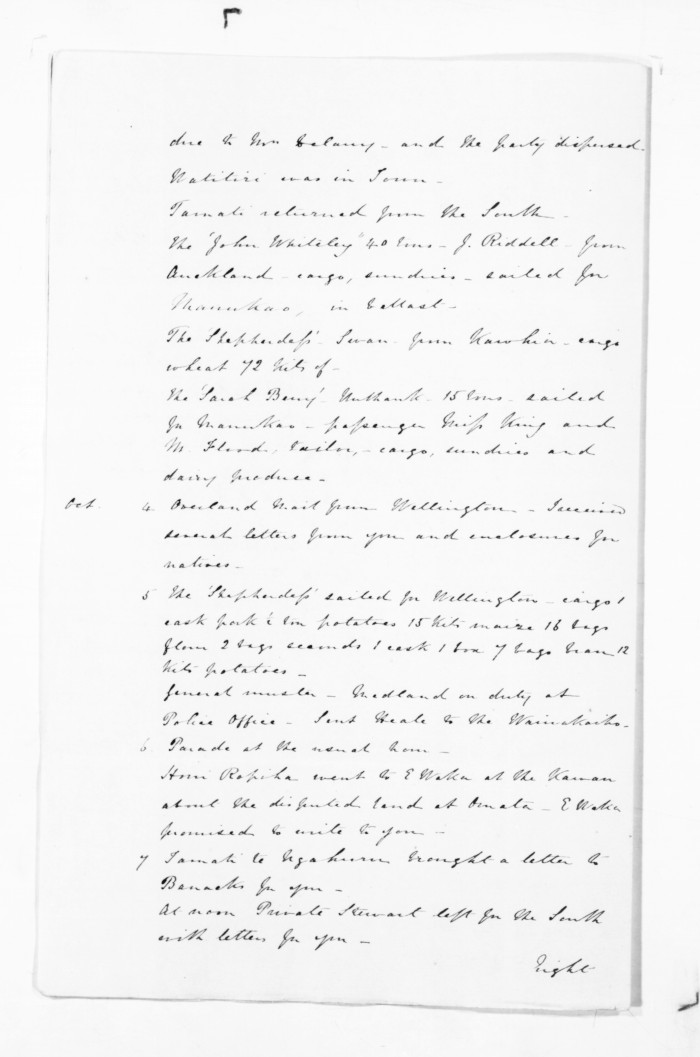 due to Mrs Delamy - and the party dispersed.
Watitiri was in Town -
Tamati returned from the South -
The "John Whiteley" 40 Tons - J. Riddell - from
Auckland - cargo, sundries - sailed for
Manukao, in ballast -
The 'Shepherdess' - Swan - from Kawhia - cargo
wheat 72 kits of -
The 'Sarah Berry' - Unthank - 15 Tons - sailed
for Manukao - passenger Miss King and
Mr Flood, tailor, - cargo, sundries and
dairy produce -
Oct. 4 Overland Mail from Wellington - I received
several letters from you and enclosures for
natives -
5 The 'Shepherdess' sailed for Wellington - cargo 1
cask pork ½ ton potatoes 15 kits maize 16 bags
flour 2 bags seconds 1 cask 1 box 7 bags bran 12
kits potatoes -
General muster - Medland on duty at
Police Office - Sent Heale to the Waiwakaiho -
6 Parade at the usual hour -
Honi Ropiha went to E Waka at the Kawau
about the disputed land at Omata - E Waka
promised to write to you -
7 Tamati te Ngahuru brought a letter to
Barracks for you -
At noon Private Stewart left for the South
with letters for you -
Eight